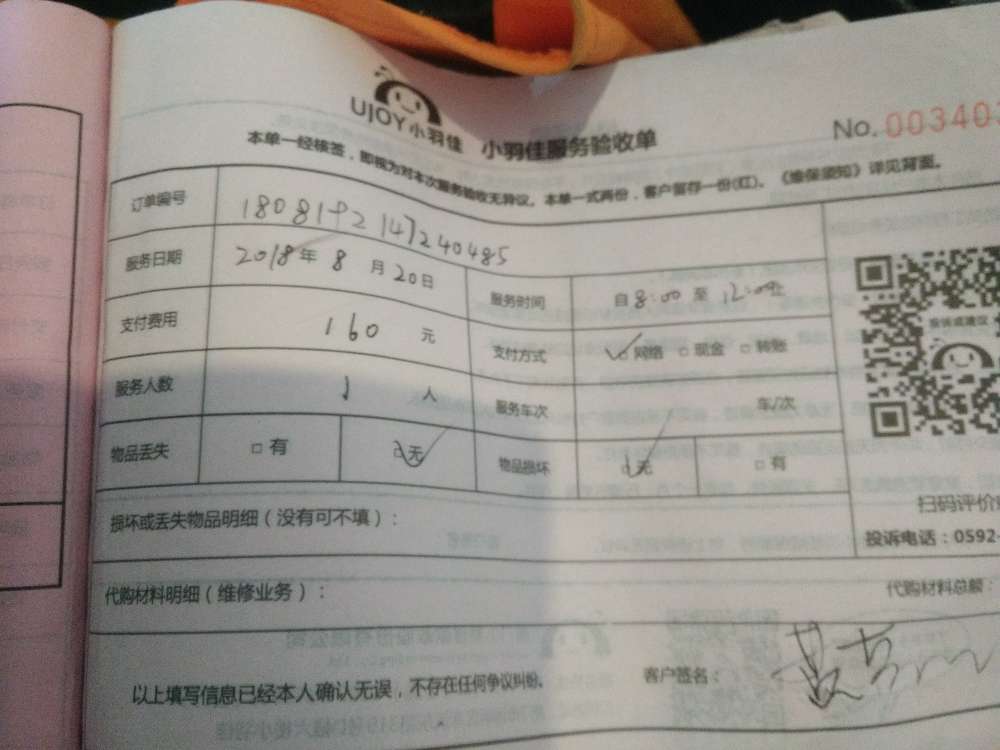 UJOY小羽佳 小羽佳服务验收单
No. 00340
本单一经核签，即视为对本次服务验收无异议。本单一式两份，客户留存一份(红)。《维保须知》详见背面。
订单编号
服务日期 2018年8月20日 服务时间 自8:00至12:00
支付费用 160元 支付方式 ☑网络 □现金 □转账
服务人数 1人 服务车次 车/次
物品丢失 □有 ☑无 物品损坏 ☑无 □有
投诉或建议
扫码评价
投诉电话：0592-
损坏或丢失物品明细（没有可不填）：
代购材料明细（维修业务）： 代购材料总额：
以上填写信息已经本人确认无误，不存在任何争议纠纷。 客户签名：